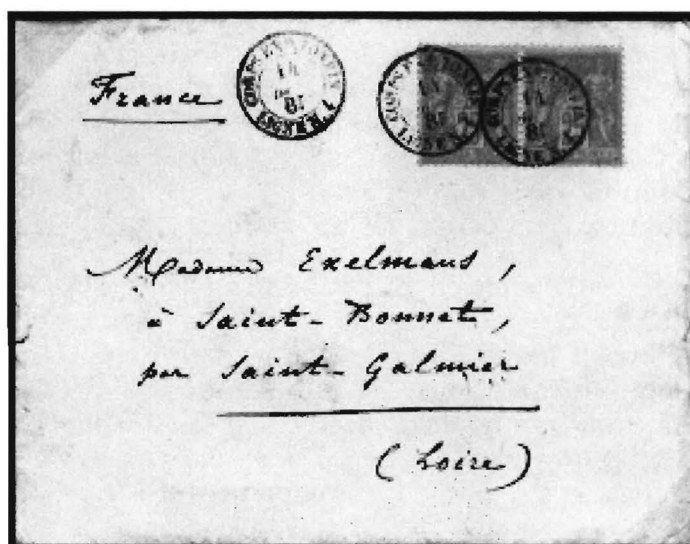 France
Madame Exelmans,
à Saint-Bonnet,
par Saint-Galmier
(Loire)